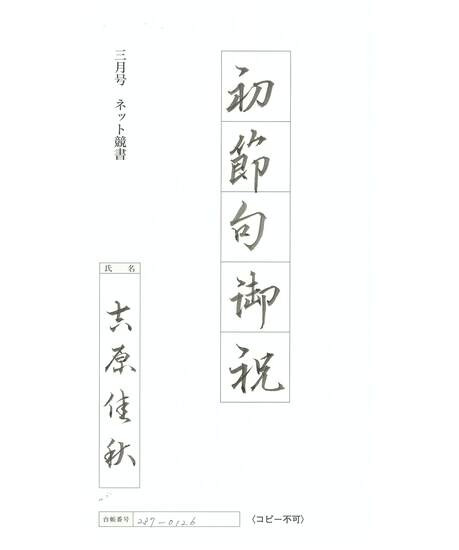 初節句御祝
三月号 ネット競書
氏名
吉原佳秋
台帳番号 287-0126
〈コピー不可〉